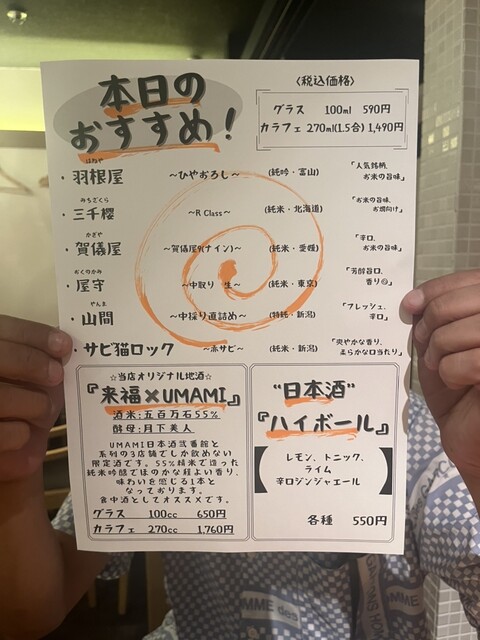 本日の
おすすめ!
〈税込価格〉
グラス 100ml 590円
カラフェ 270ml(1.5合) 1,490円
はねや
・羽根屋 ~ひやおろし~ (純吟・富山) 「人気銘柄、
お米の旨味」
みちざくら
・三千櫻 ~R Class~ (純米・北海道) 「お米の旨味、
お燗向け」
かぎや
・賀儀屋 ~賀儀屋9(ナイン)~ (純米・愛媛) 「辛口、
お米の旨味」
おくのかみ
・屋守 ~中取り 生~ (純米・東京) 「芳醇旨口、
香り◎」
やんま
・山間 ~中採り直詰め~ (特純・新潟) 「フレッシュ、
辛口」
・サビ猫ロック ~赤サビ~ (純米・新潟) 「爽やかな香り、
柔らかな口当たり」
☆当店オリジナル地酒☆
『来福×UMAMI』
酒米:五百万石55%
酵母:月下美人
UMAMI日本酒弐番館と
系列の3店舗でしか飲めない
限定酒です。55%精米で造った
純米吟醸でほのかな程よい香り、
味わいを感じる1本と
なっております。
食中酒としてオススメです。
グラス 100cc 650円
カラフェ 270cc 1,760円
"日本酒"
『ハイボール』
レモン、トニック、
ライム
辛口ジンジャエール
各種 550円
OMME des